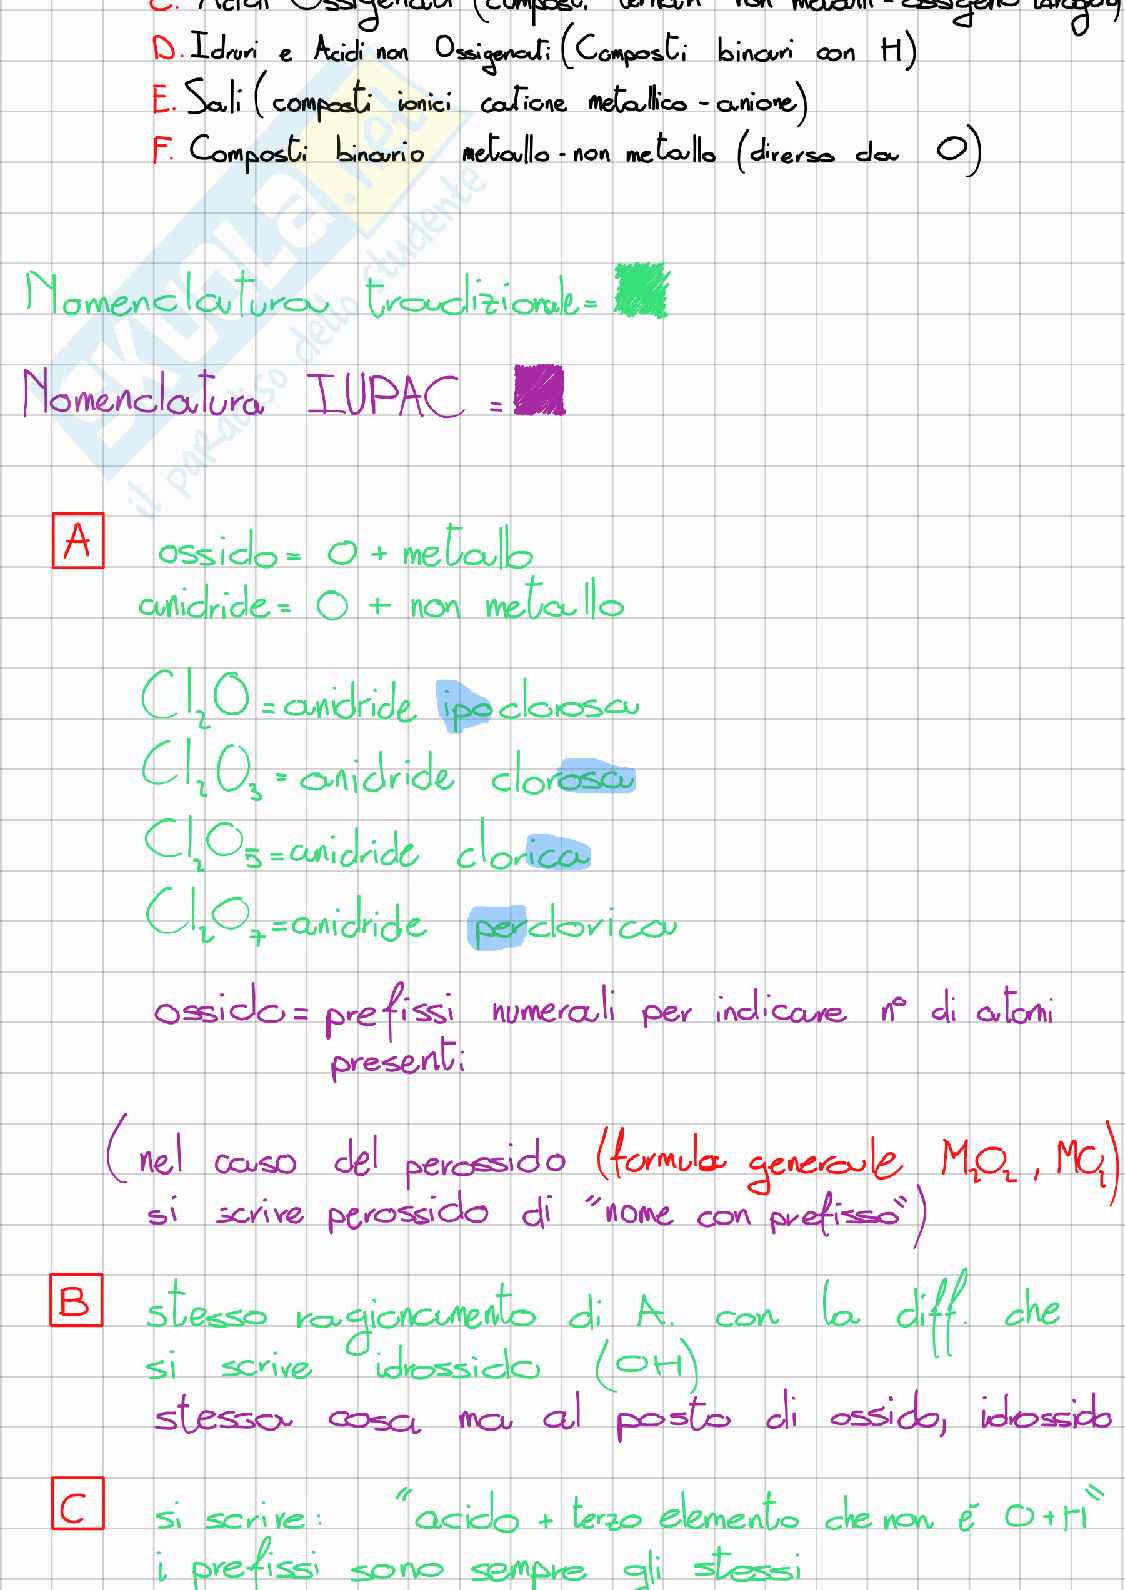 C. Acidi Ossigenati (composti ternari non metalli-ossigeno-idrogeno)
D. Idruri e Acidi non Ossigenati (Composti binari con H)
E. Sali (composti ionici catione metallico-anione)
F. Composti binario metallo-non metallo (diverso da O)
SKUOLA.net
il paradiso dello studente
Nomenclatura tradizionale=
Nomenclatura IUPAC =
A ossido= O + metallo
anidride= O + non metallo
Cl₂O=anidride ipoclorosa
Cl₂O₃=anidride clorosa
Cl₂O₅=anidride clorica
Cl₂O₇=anidride perclorica
ossido= prefissi numerali per indicare n° di atomi
presenti
(nel caso del perossido (formula generale M₂O₂, MO₂)
si scrive perossido di "nome con prefisso")
B stesso ragionamento di A. con la diff. che
si scrive idrossido (OH)
stessa cosa ma al posto di ossido, idrossido
C si scrive: "acido + terzo elemento che non è O+H"
i prefissi sono sempre gli stessi